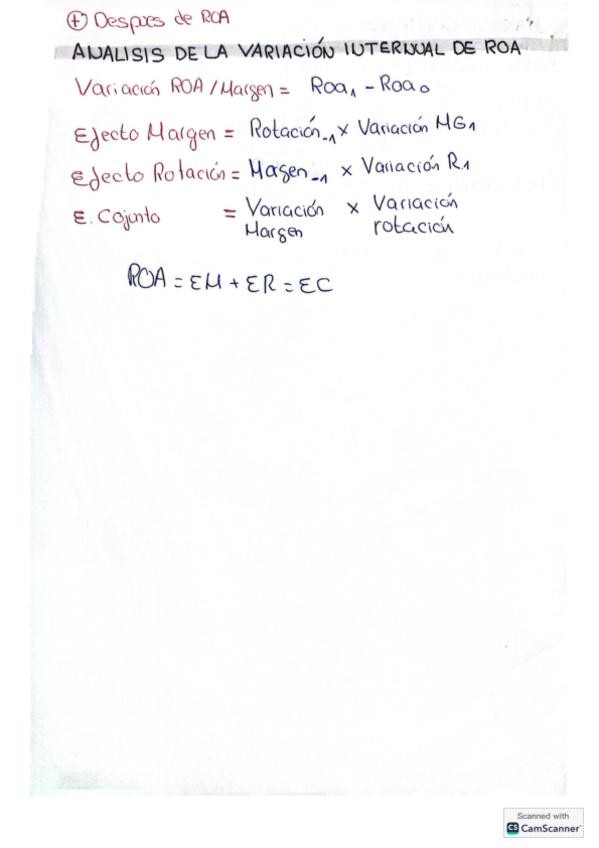 (+) Despues de ROA
ANALISIS DE LA VARIACIÓN INTERNUAL DE ROA
Variación ROA / Margen = Roa₁ - Roa₀
Efecto Margen = Rotación₋₁ x Variación MG₁
Efecto Rotación = Magen₋₁ x Variación R₁
E. Cojunto = Variación Margen x Variación rotación
ROA = EM + ER = EC
Scanned with
CS CamScanner